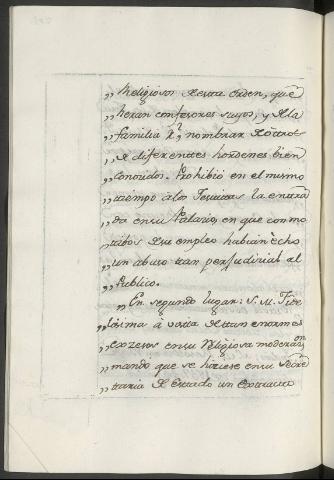 „ Religiosos de esta orden, que
„ heran confesores suyos, y de la
„ familia Rl nombrar de otros
„ de diferentes hordenes bien
„ conosidos. Prohibió en el mismo
„ tiempo a los Jesuitas la entra
„ da en su Palacio, en que con mo
„ tibos de su empleo habian echo
„ un abuso tan perjudicial al
„ Publico.
„ En segundo lugar: S. M. Fide
„ lisima à vista de tan enormes
„ exzesos en su Religiosa moderaon
„ mandó que se hiciese en su Secre
„ taria de Estado un Extracto